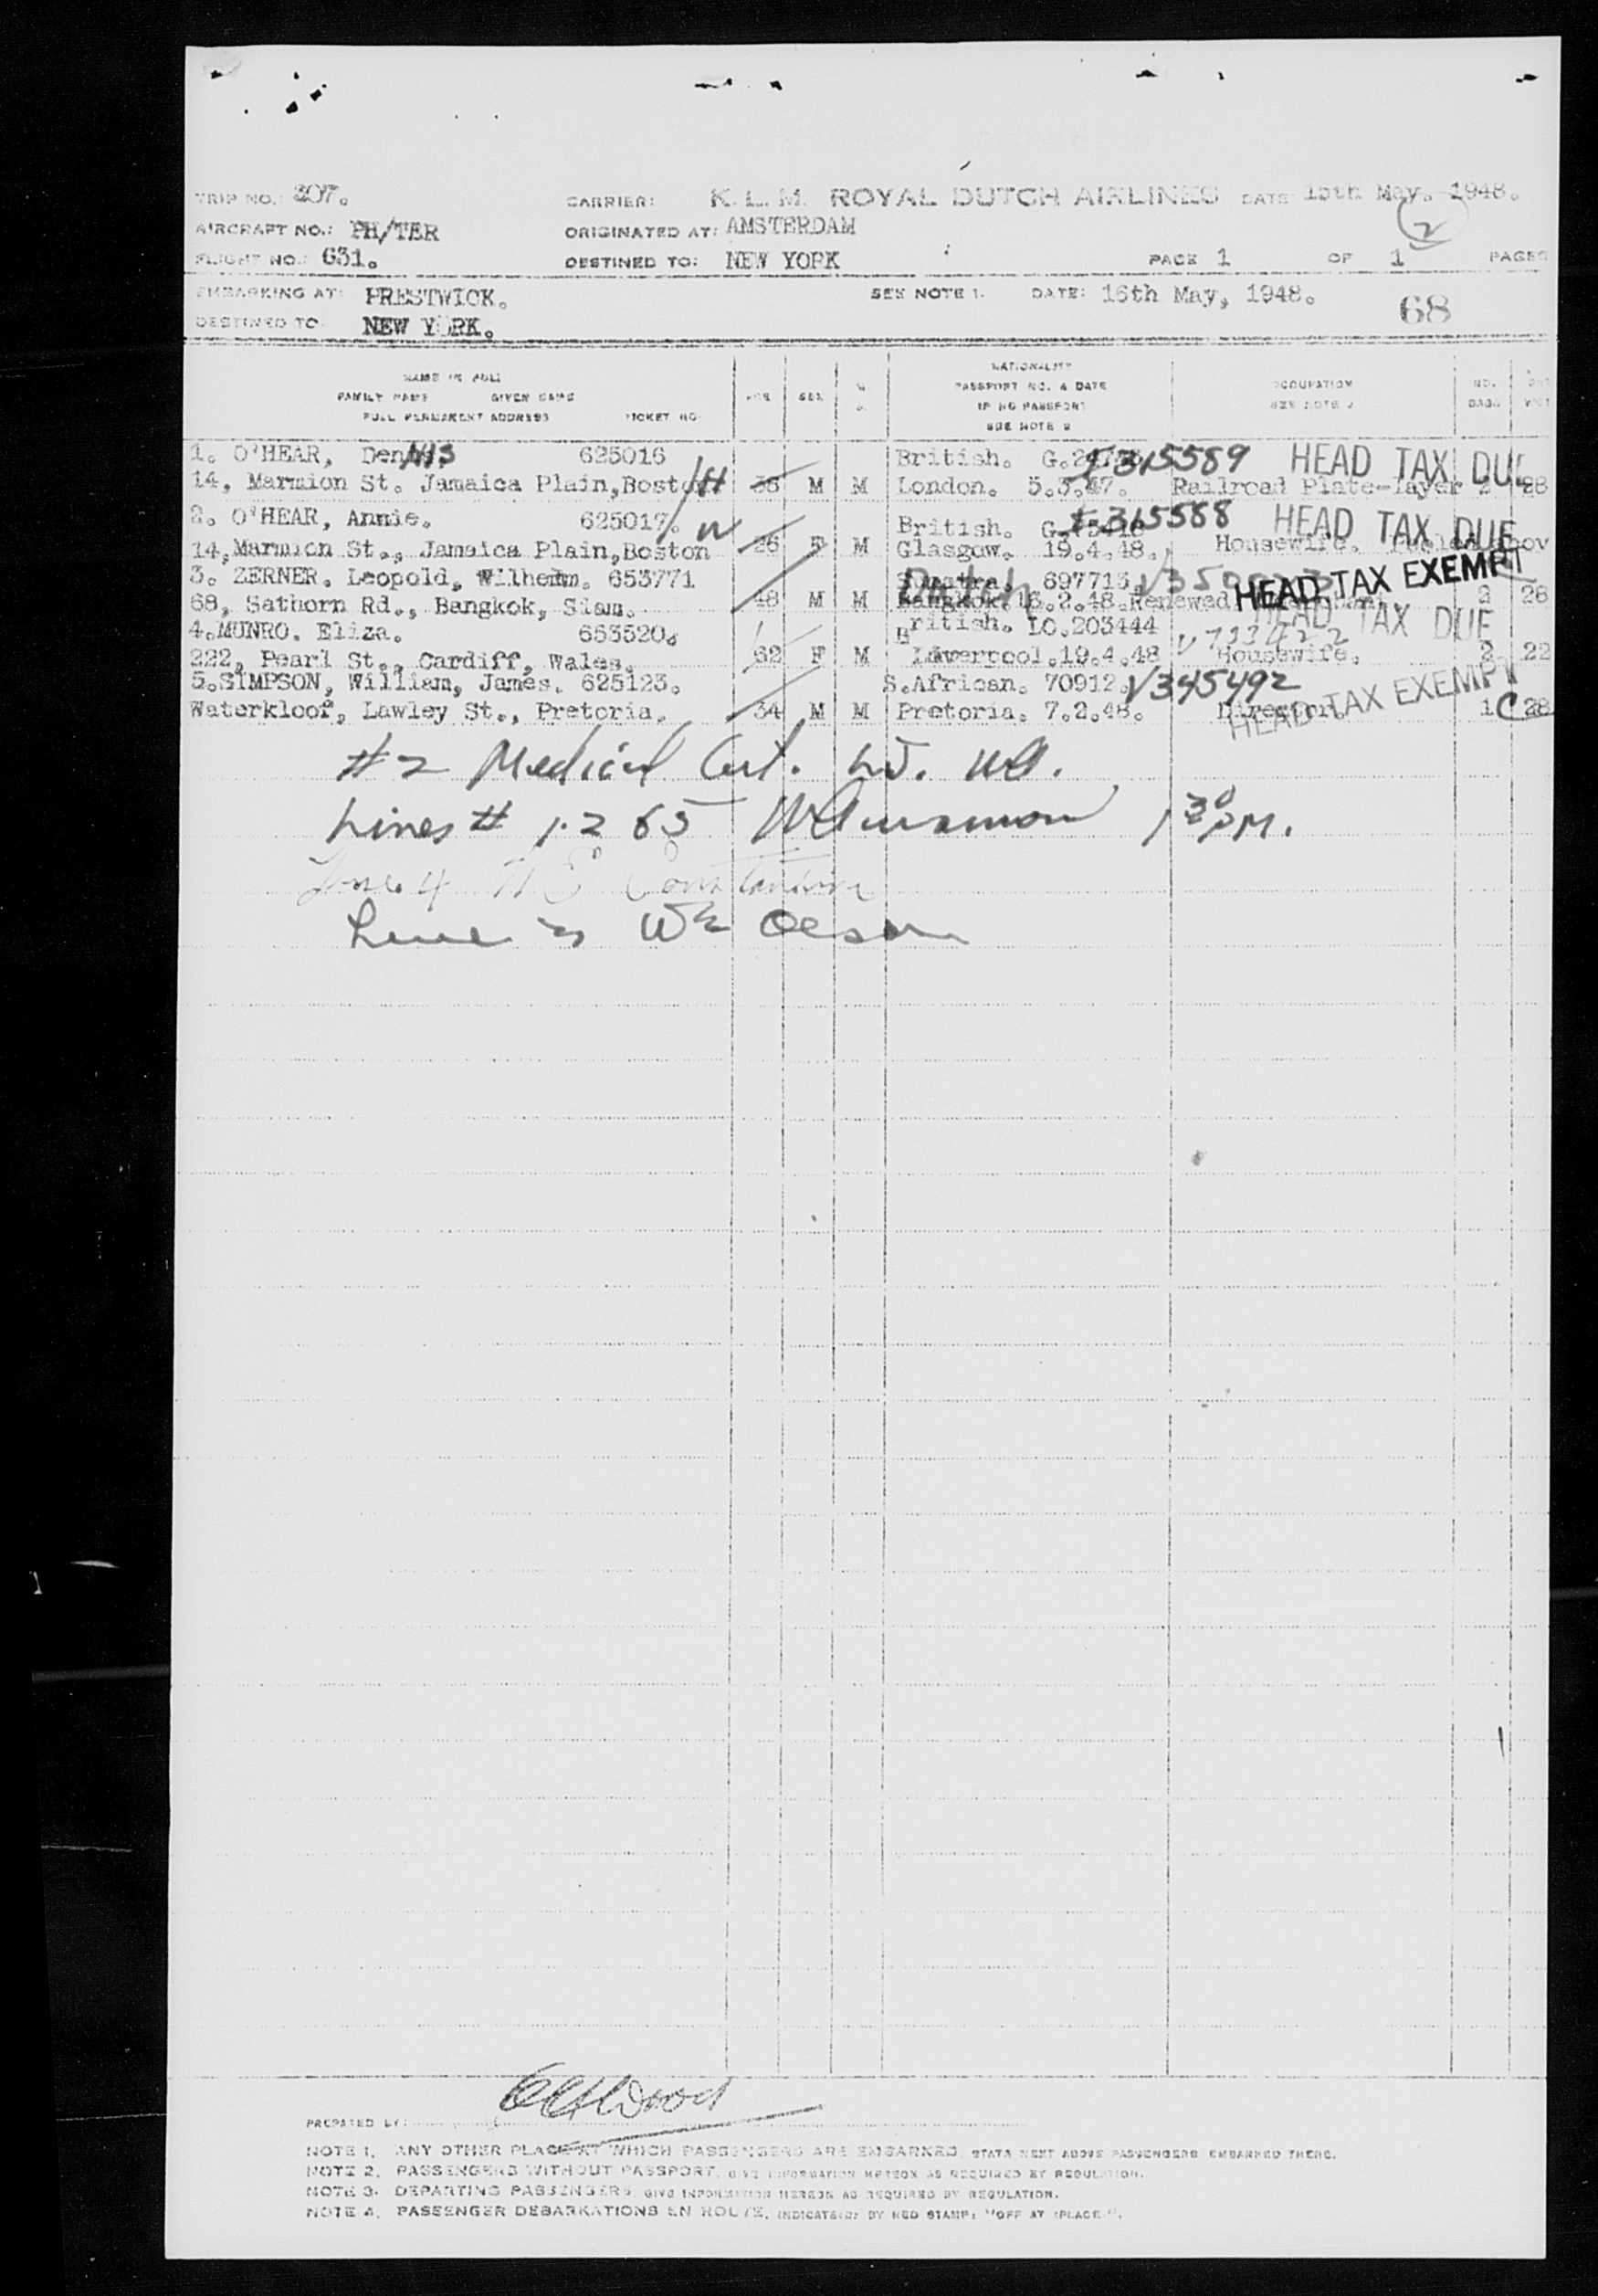 TRIP NO.: 307. CARRIER: K.L.M. ROYAL DUTCH AIRLINES DATE 15th May. 1948.
(2)
AIRCRAFT NO.: PH/TER ORIGINATED AT: AMSTERDAM
FLIGHT NO.: 631. DESTINED TO: NEW YORK PAGE 1 OF 1 PAGES
EMBARKING AT: PRESTWICK. SEE NOTE 1. DATE: 16th May, 1948.
68
DESTINED TO NEW YORK.
NAME IN FULL
FAMILY NAME GIVEN NAME
FULL PERMANENT ADDRESS TICKET NO.
AGE SEX
NATIONALITY
PASSPORT NO. & DATE
IF NO PASSPORT
SEE NOTE 2
OCCUPATION
SEE NOTE
NO. BAGS
1. O'HEAR, Dennis 625016 British. G. 315589 HEAD TAX DUE
14, Marmion St. Jamaica Plain, Boston H M M London. 5.3.47. Railroad Plate-layer 2 28
2. O'HEAR, Annie. 625017. W British. 315588 HEAD TAX DUE
14, Marmion St., Jamaica Plain, Boston 26 F M Glasgow. 19.4.48. Housewife.
3. ZERNER. Leopold, Wilhelm. 653771 Sumatra Dutch 697713. HEAD TAX EXEMPT
68, Sathorn Rd., Bangkok, Siam. 48 M M Bangkok. 13.2.48. Renewed 2 26
4. MUNRO. Eliza. 653520. British. LO.203444 HEAD TAX DUE
222, Pearl St., Cardiff, Wales. 62 F M Liverpool. 19.4.48 V 733422 Housewife. 2 22
5. SIMPSON, William, James. 625123. S.African. 70912. V345492 HEAD TAX EXEMPT
Waterkloof, Lawley St., Pretoria. 34 M M Pretoria. 7.2.48. Director. 1 C 28
#2 Medical Cert.
Lines # 1.2 & 5 1 30 PM.
Line 4
Line 3 Olson
PREPARED BY:
NOTE 1. ANY OTHER PLACE AT WHICH PASSENGERS ARE EMBARKED, STATE NEXT ABOVE PASSENGERS EMBARKED THERE.
NOTE 2. PASSENGERS WITHOUT PASSPORT, GIVE INFORMATION HEREON AS REQUIRED BY REGULATION.
NOTE 3. DEPARTING PASSENGERS GIVE INFORMATION HEREON AS REQUIRED BY REGULATION.
NOTE 4. PASSENGER DEBARKATIONS EN ROUTE, INDICATE(D) BY RED STAMP: "OFF AT (PLACE)".